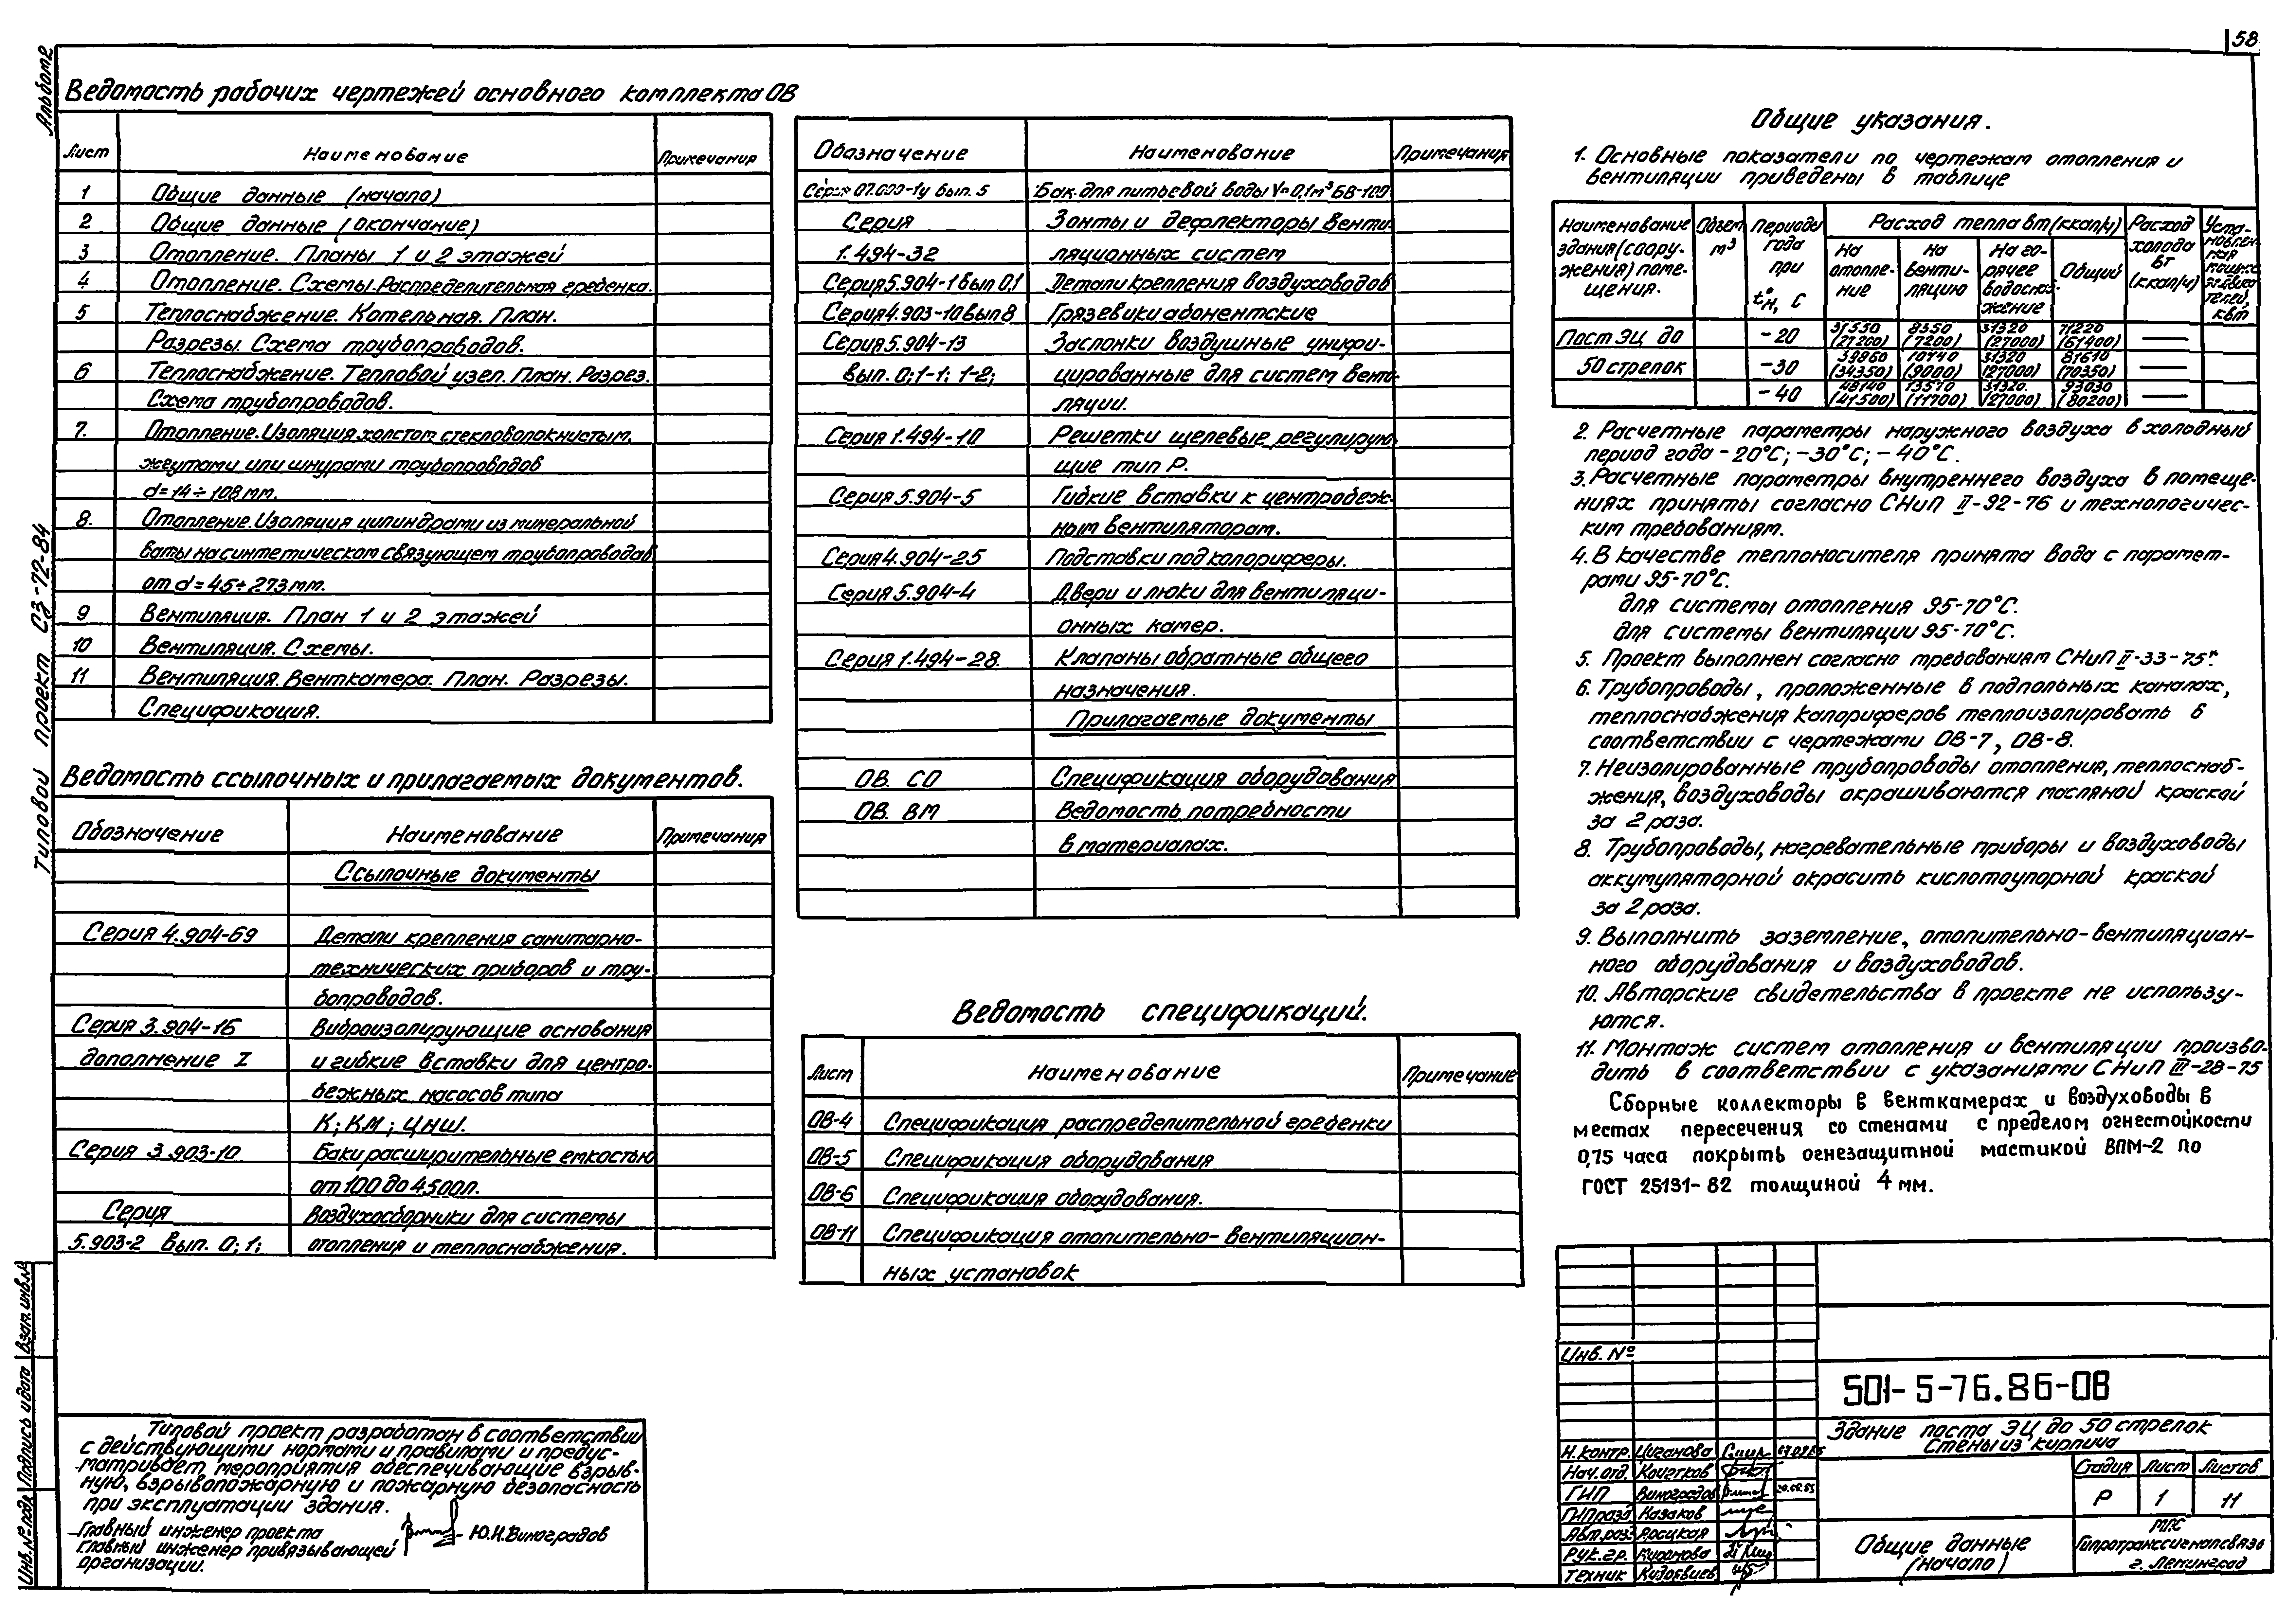 58
Альбом 2
Типовой проект СЗ-72-84
Ведомость рабочих чертежей основного комплекта ОВ
Лист Наименование Примечания
1 Общие данные (начало)
2 Общие данные (окончание)
3 Отопление. Планы 1 и 2 этажей
4 Отопление. Схемы. Распределительная гребенка.
5 Теплоснабжение. Котельная. План.
Разрезы. Схема трубопроводов.
6 Теплоснабжение. Тепловой узел. План. Разрез.
Схема трубопроводов.
7. Отопление. Изоляция холстом стекловолокнистым,
жгутами или шнурами трубопроводов
d=14÷108мм.
8. Отопление. Изоляция цилиндрами из минеральной
ваты на синтетическом связующем трубопроводов
от d=45÷273мм.
9 Вентиляция. План 1 и 2 этажей
10 Вентиляция. Схемы.
11 Вентиляция. Венткамера. План. Разрезы.
Спецификация.
Ведомость ссылочных и прилагаемых документов.
Обозначение Наименование Примечания
Ссылочные документы
Серия 4.904-69 Детали крепления санитарно-
технических приборов и тру-
бопроводов.
Серия 3.904-16 Виброизолирующие основания
дополнение I и гибкие вставки для центро-
бежных насосов типа
К; КМ; ЦНШ.
Серия 3.903-10 Баки расширительные емкостью
от 100 до 4500л.
Серия Воздухосборники для системы
5.903-2 вып. 0; 1; отопления и теплоснабжения.
Обозначение Наименование Примечания
Серия 07.900-1у вып. 5 Бак для питьевой воды V=0,1м³ БВ-100
Серия Зонты и дефлекторы венти-
1.494-32 ляционных систем
Серия 5.904-1 вып 0,1 Детали крепления воздуховодов
Серия 4.903-10 вып 8 Грязевики абонентские
Серия 5.904-13 Заслонки воздушные унифи-
вып. 0; 1-1; 1-2; цированные для систем венти-
ляции.
Серия 1.494-10 Решетки щелевые регулирую-
щие тип Р.
Серия 5.904-5 Гибкие вставки к центробеж-
ным вентиляторам.
Серия 4.904-25 Подставки под калориферы.
Серия 5.904-4 Двери и люки для вентиляци-
онных камер.
Серия 1.494-28. Клапаны обратные общего
назначения.
Прилагаемые документы
ОВ. СО Спецификация оборудования
ОВ. ВМ Ведомость потребности
в материалах.
Ведомость спецификаций.
Лист Наименование Примечание
ОВ-4 Спецификация распределительной гребенки
ОВ-5 Спецификация оборудования
ОВ-6 Спецификация оборудования.
ОВ-11 Спецификация отопительно-вентиляцион-
ных установок
Общие указания.
1. Основные показатели по чертежам отопления и
вентиляции приведены в таблице
Наименование здания (соору-жения) поме-щения. Объем м³ Периоды года при tн, °С Расход тепла вт (ккал/ч) Расход холода вт (ккал/ч) Уста-новлен-ная мощно. эл. двига-телей, квт
На отопле-ние На венти-ляцию На го-рячее водосна-жение Общий
Пост ЭЦ до -20 31550 (27200) 8350 (7200) 31320 (27000) 71220 (61400) —
50 стрелок -30 39860 (34350) 10440 (9000) 31320 (27000) 81610 (70350) —
-40 48140 (41500) 13570 (11700) 31320. (27000) 93030 (80200) —
2. Расчетные параметры наружного воздуха в холодный
период года -20°С; -30°С; -40°С.
3. Расчетные параметры внутреннего воздуха в помеще-
ниях приняты согласно СНиП II-92-76 и технологичес-
ким требованиям.
4. В качестве теплоносителя принята вода с парамет-
рами 95-70°С.
для системы отопления 95-70°С.
для системы вентиляции 95-70°С.
5. Проект выполнен согласно требованиям СНиП II-33-75*.
6. Трубопроводы, проложенные в подпольных каналах,
теплоснабжения калориферов теплоизолировать в
соответствии с чертежами ОВ-7, ОВ-8.
7. Неизолированные трубопроводы отопления, теплоснаб-
жения, воздуховоды окрашиваются масляной краской
за 2 раза.
8. Трубопроводы, нагревательные приборы и воздуховоды
аккумуляторной окрасить кислотоупорной краской
за 2 раза.
9. Выполнить заземление, отопительно-вентиляцион-
ного оборудования и воздуховодов.
10. Авторские свидетельства в проекте не использу-
ются.
11. Монтаж систем отопления и вентиляции произво-
дить в соответствии с указаниями СНиП III-28-75
Сборные коллекторы в венткамерах и воздуховоды в
местах пересечения со стенами с пределом огнестойкости
0,75 часа покрыть огнезащитной мастикой ВПМ-2 по
ГОСТ 25131-82 толщиной 4 мм.
Типовой проект разработан в соответствии
с действующими нормами и правилами и предус-
матривает мероприятия обеспечивающие взрыв-
ную, взрывопожарную и пожарную безопасность
при эксплуатации здания.
Главный инженер проекта Ю.И. Виноградов
Главный инженер привязывающей
организации.
Инв. № подл Подпись и дата Взам. инв. №
Инв. №
501-5-76.86-ОВ
Здание поста ЭЦ до 50 стрелок
Стены из кирпича
Н.контр. Циганова
Нач.отд. Кочетков
ГИП Виноградов
ГИП разд Казаков
Авт.разд Яроцкая
Рук.гр. Миранова
Техник Кудрявцев
Стадия Лист Листов
Р 1 11
Общие данные
(начало)
МПС
Гипротранссигналсвязь
г. Ленинград